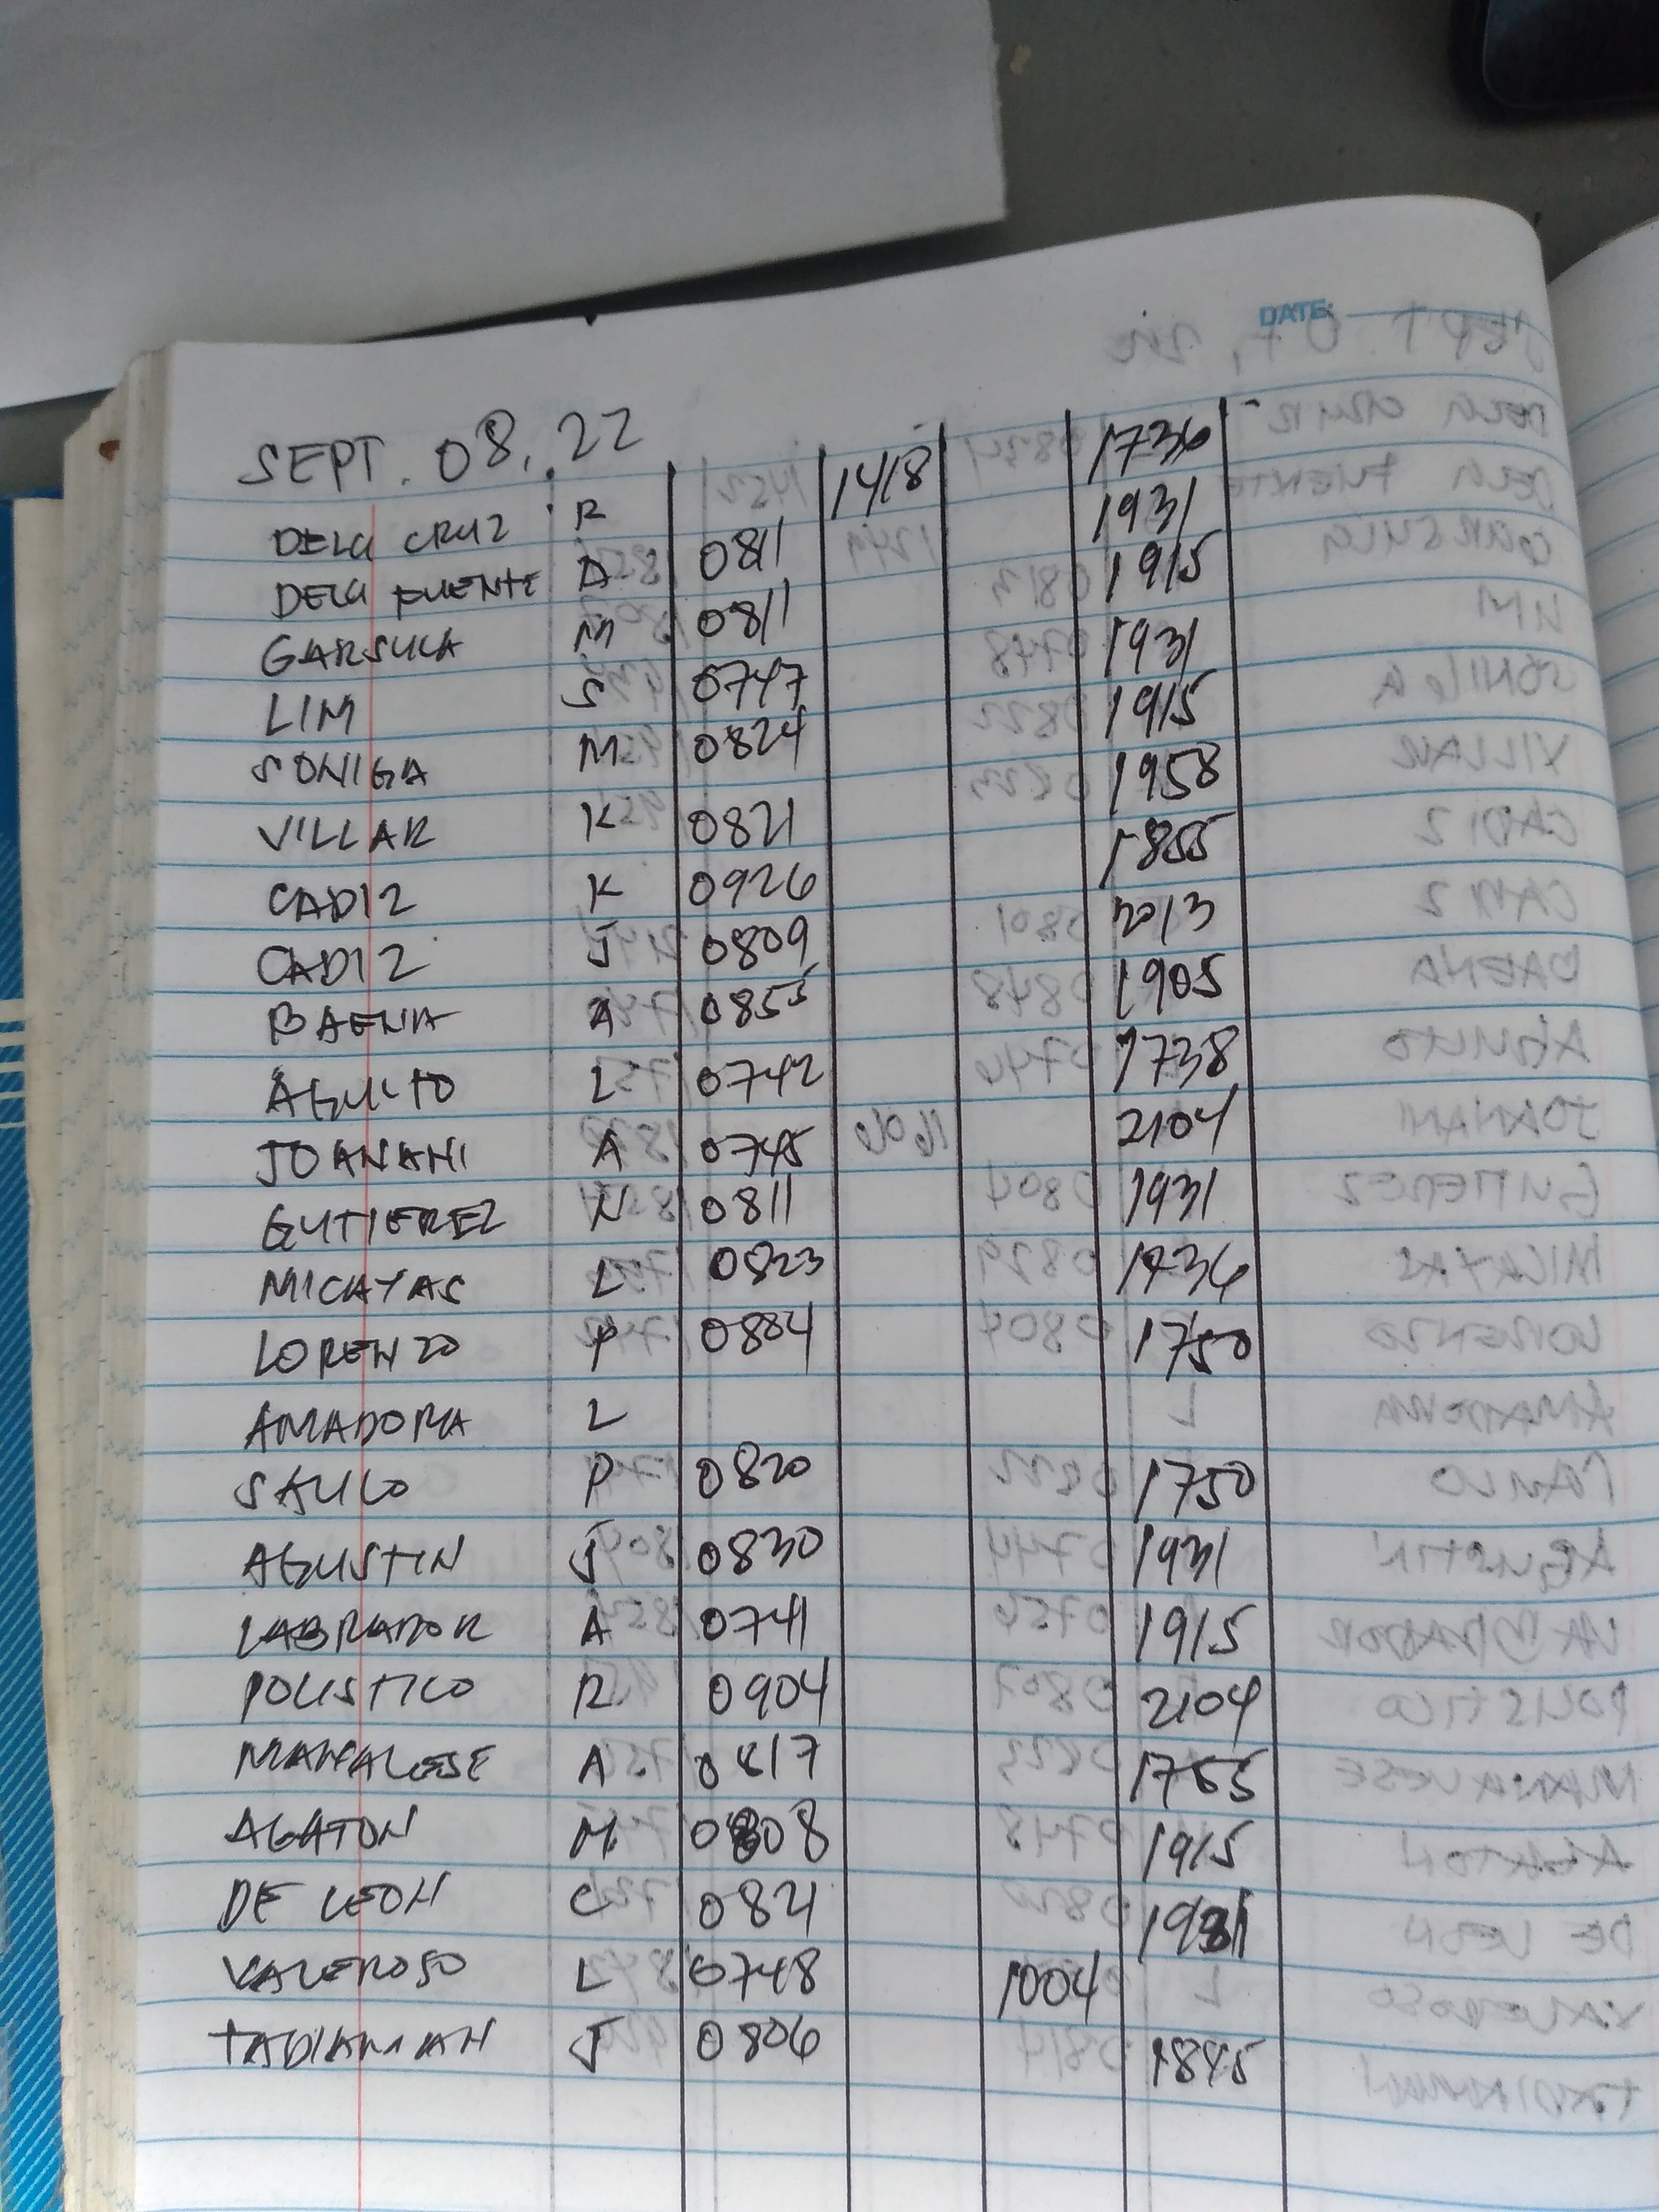 DATE:
SEPT. 08, 22
DELA CRUZ R 1418 1736
DELA FUENTE A 0811 1931
GARSULA M 0811 1915
LIM S 0747 1931
SONIGA M 0824 1915
VILLAR K 0821 1958
CADIZ K 0926 1855
CADIZ J 0809 2013
BAENA A 0855 1905
AGULTO L 0742 1738
JOANANI A 0745 2104
GUTIEREZ N 0811 1931
MICAYAS L 0823 1736
LORENZO P 0884 1750
AMADORA L
SAULO P 0820 1750
AGUSTIN J 0830 1931
LABRADOR A 0741 1915
POLISTICO R 0904 2104
MANALESE A 0817 1755
AGATON M 0808 1915
DE LEON C 0821 1931
VALEROSO L 0748 1004
TADIAMAN J 0806 1845